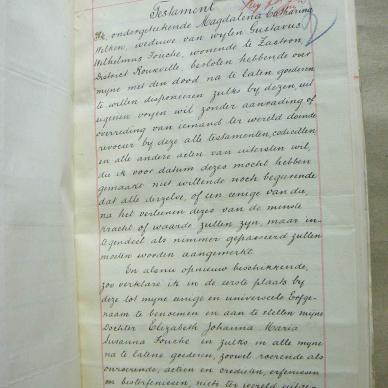 Testament
Ik, ondergeteekende Magdalena Catharina
Wilken, weduwe van wylen Gustavus
Wilhelmus Fouche, wonende te Zastron
District Rouxville, besloten hebbende over
myne met den dood na te laten goederen
te willen disponieren zulks by dezen, uit
eigenen vryen wil zonder aanrading of
overreding van iemand ter wereld doende
revoceer by deze alle testamenten, codicillen
en alle andere acten van uitersten wil,
die ik voor datum dezes mocht hebben
gemaakt niet willende noch begeerende
dat alle derzelve, of een eenige van die,
na het verleenen dezes van de minste
kracht of waarde zullen zyn, maar in-
tegendeel als nimmer gepasseerd zullen
moeten worden aangemerkt.
En alsnu opnieuw beschikkende,
zoo verklare ik in de eerste plaats by
deze tot myne eenige en universeele Erfge-
naam te benoemen en aan te stellen myne
Dochter Elizabeth Johanna Maria
Susanna Fouche en zulks in alle myne
na te latene goederen, zoowel roerende als
onroerende, actien en crediten, erfenissen
en besterfenissen, niets ter wereld uitge-